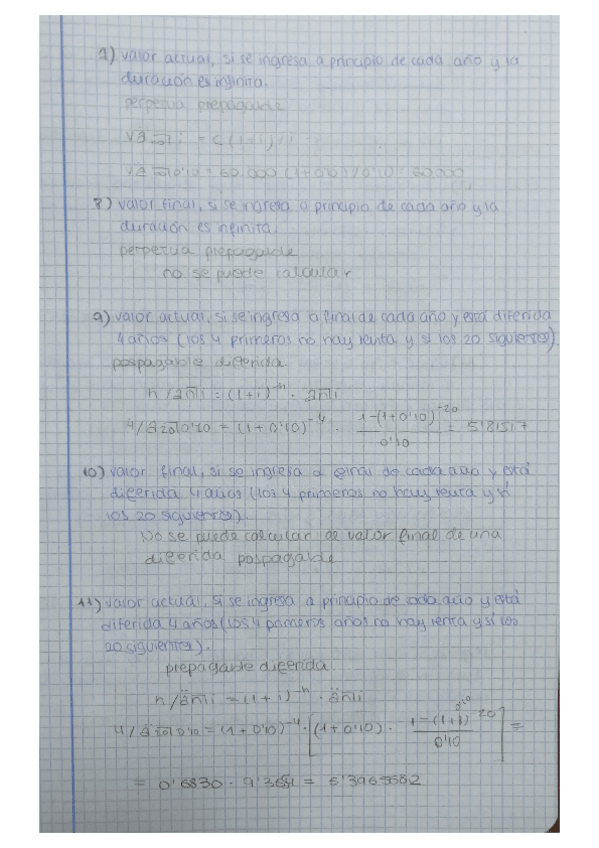 7) valor actual, si se ingresa a principio de cada año y la
duración es infinita.
perpetua prepagable
Vä∞ i = c (1+i)/i
Vä∞ 0'10 = 60.000 (1+0'10)/0'10 = 60.000
8) valor final, si se ingresa a principio de cada año y la
duración es infinita.
perpetua prepagable
no se puede calcular
9) valor actual, si se ingresa a final de cada año y está diferida
4 años (los 4 primeros no hay renta y sí los 20 siguientes)
pospagable diferida.
n/an┐i = (1+i)^-n · an┐i
4/a20┐0'10 = (1+0'10)^-4 · 1-(1+0'10)^-20 / 0'10 = 5'8151
10) valor final, si se ingresa a final de cada año y está
diferida 4 años (los 4 primeros no hay renta y sí
los 20 siguientes).
No se puede calcular de valor final de una
diferida pospagable
11) valor actual, si se ingresa a principio de cada año y está
diferida 4 años (los 4 primeros años no hay renta y sí los
20 siguientes).
prepagable diferida.
n/än┐i = (1+i)^-n · än┐i
4/ä20┐0'10 = (1+0'10)^-4 · [(1+0'10) · 1-(1+i)^-20 / 0'10] =
= 0'6830 · 9'3651 =